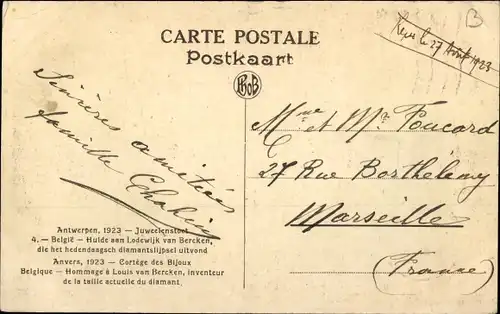 B
Reçu le 27 Août 1923
CARTE POSTALE
Postkaart
PhoB
Sincères amitiés
famille
Mme et Mr. Foucard
27 Rue Borthélemy
Marseille
(France)
Antwerpen, 1923 — Juweelenstoet
4. — België — Hulde aan Lodewijk van Bercken,
die het hedendaagsch diamantslijpsel uitvond
Anvers, 1923 — Cortège des Bijoux
Belgique — Hommage à Louis van Bercken, inventeur
de la taille actuelle du diamant